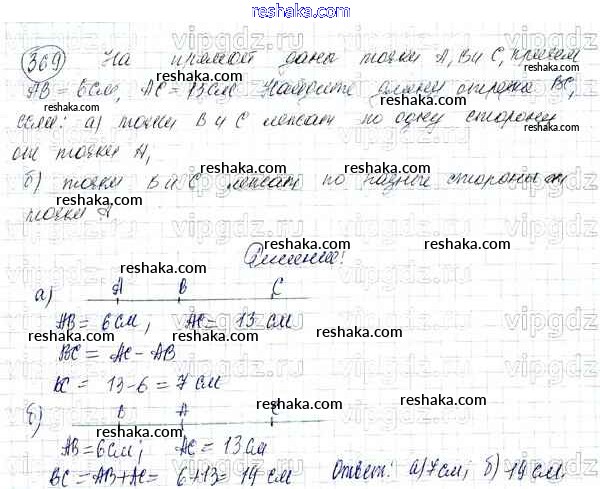 reshaka.com
369 На прямой даны точки A, B и C, причем
AB = 6см, AC = 13см Найдите длину отрезка BC,
если: а) точки B и C лежат по одну сторону
от точки A,
б) точки B и C лежат по разные стороны от
точки A
Решение:
а) A B C
AB = 6 см, AC = 13 см
BC = AC - AB
BC = 13 - 6 = 7 см
б) B A C
AB = 6см; AC = 13см
BC = AB + AC = 6 + 13 = 19 см Ответ: а) 7см; б) 19 см.